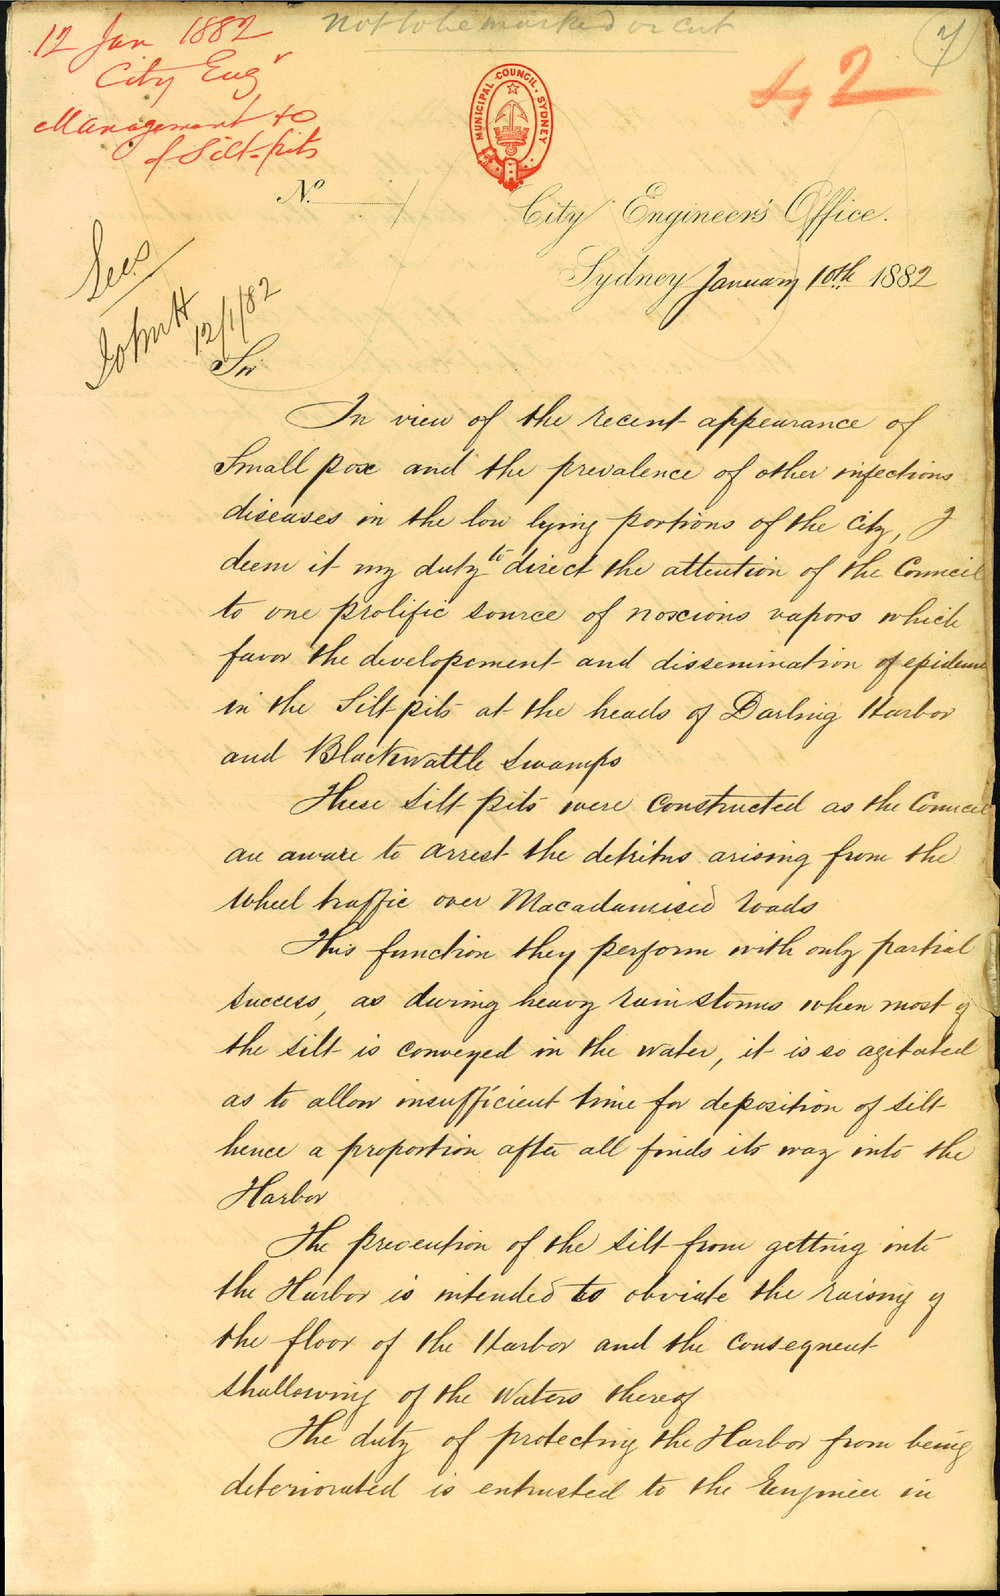 Not to be marked or cut
7
12 Jan 1882
City Engr
Management to
of Silt-pits
42
MUNICIPAL COUNCIL. SYDNEY
No.
City Engineer's Office.
Sydney January 10th 1882
Seen
John H
12/1/82
Sir
In view of the recent appearance of
Small pox and the prevalence of other infectious
diseases in the low lying portions of the city, I
deem it my duty to direct the attention of the Council
to one prolific source of noxcious vapors which
favor the developement and dissemination of epidem
in the Silt pits at the heads of Darling Harbor
and Blackwattle Swamps
These Silt pits were constructed as the Council
are aware to arrest the detritus arising from the
Wheel traffic over Macadamised roads
This function they perform with only partial
success, as during heavy rain storms when most of
the silt is conveyed in the water, it is so agitated
as to allow insufficient time for deposition of silt
hence a proportion after all finds its way into the
Harbor
The prevention of the silt from getting into
the Harbor is intended to obviate the raising of
the floor of the Harbor and the consequent
shallowing of the Waters thereof
The duty of protecting the Harbor from being
deteriorated is entrusted to the Engineer in